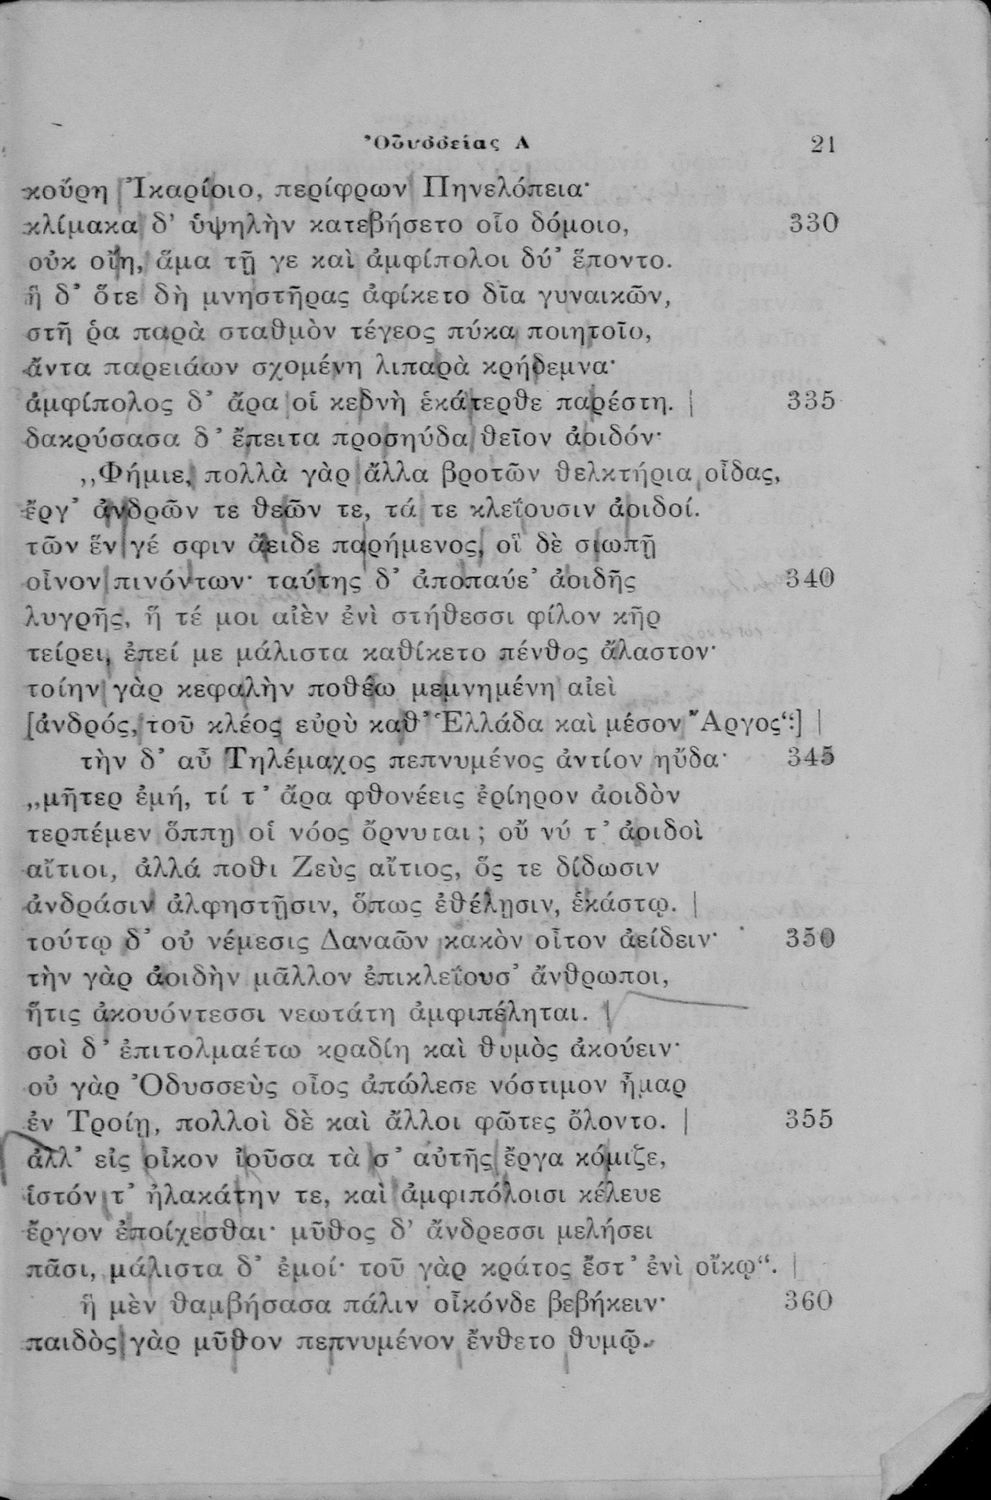 Ὀδυσσείας Α 21
κούρη Ἰκαρίοιο, περίφρων Πηνελόπεια·
κλίμακα δ’ ὑψηλὴν κατεβήσετο οἷο δόμοιο, 330
οὐκ οἴη, ἅμα τῇ γε καὶ ἀμφίπολοι δύ’ ἕποντο.
ἣ δ’ ὅτε δὴ μνηστῆρας ἀφίκετο δῖα γυναικῶν,
στῆ ῥα παρὰ σταθμὸν τέγεος πύκα ποιητοῖο,
ἄντα παρειάων σχομένη λιπαρὰ κρήδεμνα·
ἀμφίπολος δ’ ἄρα οἱ κεδνὴ ἑκάτερθε παρέστη. | 335
δακρύσασα δ’ ἔπειτα προσηύδα θεῖον ἀοιδόν·
„Φήμιε, πολλὰ γὰρ ἄλλα βροτῶν θελκτήρια οἶδας,
ἔργ’ ἀνδρῶν τε θεῶν τε, τά τε κλεΐουσιν ἀοιδοί.
τῶν ἕν γέ σφιν ἄειδε παρήμενος, οἳ δὲ σιωπῇ
οἶνον πινόντων· ταύτης δ’ ἀποπαύε’ ἀοιδῆς 340
λυγρῆς, ἥ τέ μοι αἰὲν ἐνὶ στήθεσσι φίλον κῆρ
τείρει, ἐπεί με μάλιστα καθίκετο πένθος ἄλαστον·
τοίην γὰρ κεφαλὴν ποθέω μεμνημένη αἰεὶ
[ἀνδρός, τοῦ κλέος εὐρὺ καθ’ Ἑλλάδα καὶ μέσον Ἄργος“.] |
τὴν δ’ αὖ Τηλέμαχος πεπνυμένος ἀντίον ηὔδα· 345
„μῆτερ ἐμή, τί τ’ ἄρα φθονέεις ἐρίηρον ἀοιδὸν
τερπέμεν ὅππῃ οἱ νόος ὄρνυται; οὔ νύ τ’ ἀοιδοὶ
αἴτιοι, ἀλλά ποθι Ζεὺς αἴτιος, ὅς τε δίδωσιν
ἀνδράσιν ἀλφηστῇσιν, ὅπως ἐθέλῃσιν, ἑκάστῳ. |
τούτῳ δ’ οὐ νέμεσις Δαναῶν κακὸν οἶτον ἀείδειν· 350
τὴν γὰρ ἀοιδὴν μᾶλλον ἐπικλεΐουσ’ ἄνθρωποι,
ἥτις ἀκουόντεσσι νεωτάτη ἀμφιπέληται.
σοὶ δ’ ἐπιτολμαέτω κραδίη καὶ θυμὸς ἀκούειν·
οὐ γὰρ Ὀδυσσεὺς οἶος ἀπώλεσε νόστιμον ἦμαρ
ἐν Τροίῃ, πολλοὶ δὲ καὶ ἄλλοι φῶτες ὄλοντο. | 355
ἀλλ’ εἰς οἶκον ἰοῦσα τὰ σ’ αὐτῆς ἔργα κόμιζε,
ἱστόν τ’ ἠλακάτην τε, καὶ ἀμφιπόλοισι κέλευε
ἔργον ἐποίχεσθαι· μῦθος δ’ ἄνδρεσσι μελήσει
πᾶσι, μάλιστα δ’ ἐμοί· τοῦ γὰρ κράτος ἔστ’ ἐνὶ οἴκῳ“. |
ἣ μὲν θαμβήσασα πάλιν οἶκόνδε βεβήκειν· 360
παιδὸς γὰρ μῦθον πεπνυμένον ἔνθετο θυμῷ.